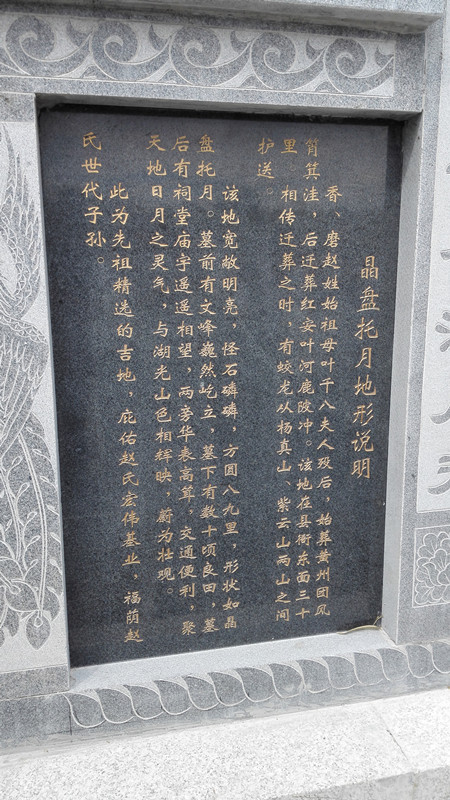 晶盘托月地形说明
香、磨赵姓始祖母叶千八夫人殁后，始葬黄州团风
筲箕洼，后迁葬红安叶河鹿陂冲。该地在县衙东面三十
里。相传迁葬之时，有蛟龙从杨真山、紫云山两山之间
护送。
该地宽敞明亮，怪石磷磷，方圆八九里，形状如晶
盘托月。墓前有文峰巍然屹立，墓下有数十顷良田，墓
后有祠堂庙宇遥遥相望，两旁华表高耸，交通便利，聚
天地日月之灵气，与湖光山色相辉映，蔚为壮观。
此为先祖精选的吉地，庇佑赵氏宏伟基业，福荫赵
氏世代子孙。